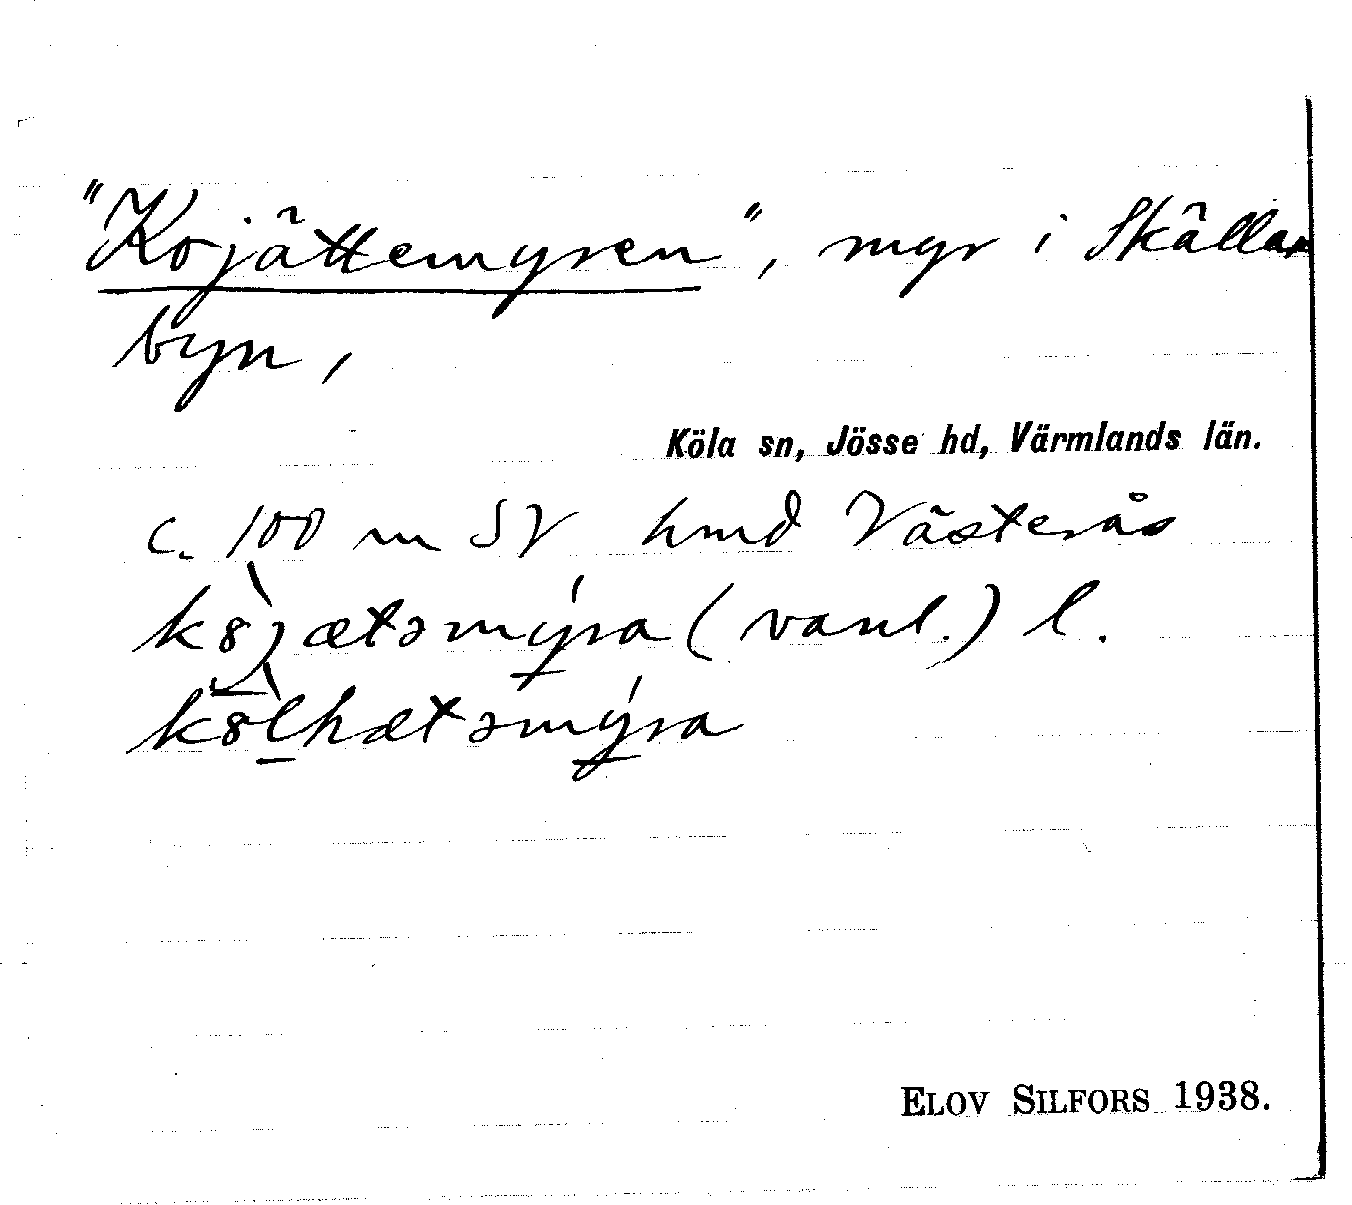 "Kojättemyren", myr i Skällar
byn,
Köla sn, Jösse hd, Värmlands län.
c. 100 m SV hmd Västerås
kȣ̀jætəmýra (vanl.) l.
kȣ̀lhætəmýra
ELOV SILFORS 1938.